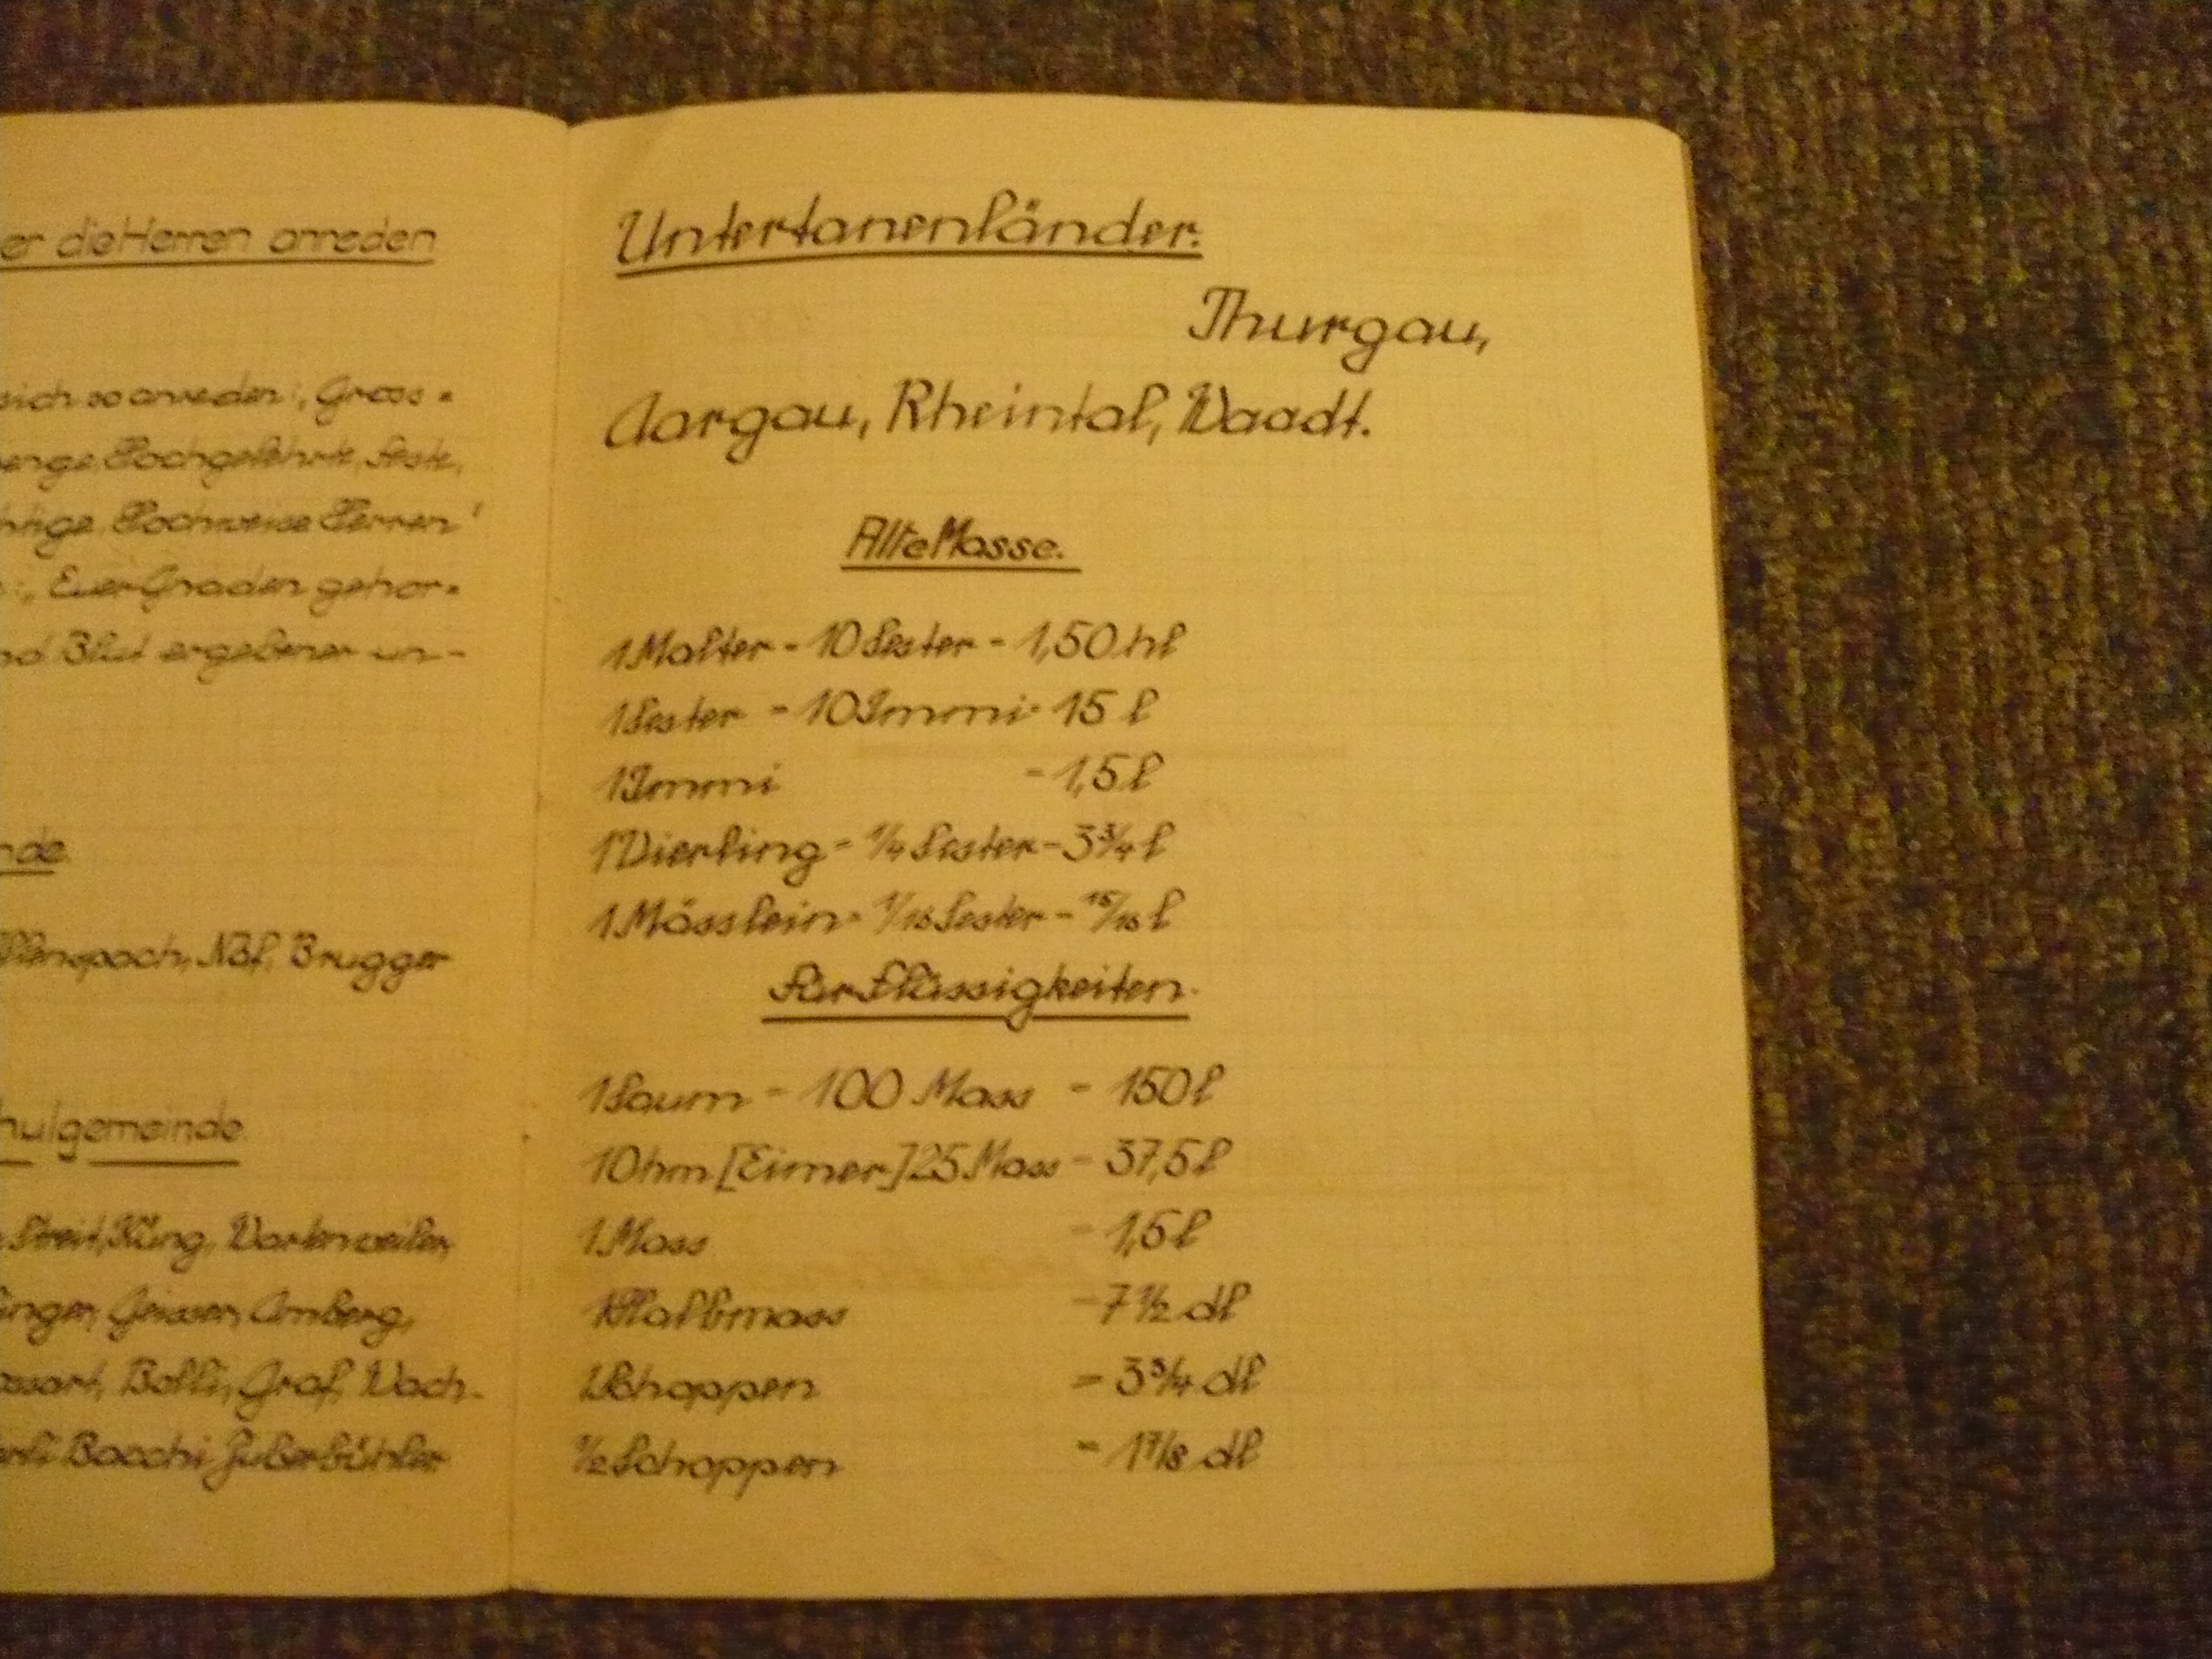 er die Herren anreden
sich so anreden: „Gross=
enge, Hochgelehrte, feste,
htige, Hochweise Herren"
: „Euer Gnaden gehor=
nd Blut ergebener un-
nde.
Brugger
hulgemeinde.
Streit, Kling, Wartenweiler,
inger, Geisser, Amberg,
Bolli, Graf, Wach-
erli Bacchi Zuberbühler
Untertanenländer:
Thurgau,
Aargau, Rheintal, Waadt.
Alte Masse.
1 Malter - 10 Sester - 1,50 hl
1 Sester - 10 Immi - 15 l
1 Immi - 1,5 l
1 Vierling - 1/4 Sester - 3 3/4 l
1 Mässlein - 1/16 Sester - 15/16 l
Für Flüssigkeiten.
1 Saum - 100 Mass - 150 l
1 Ohm [Eimer] 25 Mass - 37,5 l
1 Mass - 1,5 l
1 Halbmass - 7 1/2 dl
1 Schoppen = 3 3/4 dl
1/2 Schoppen = 1 7/8 dl